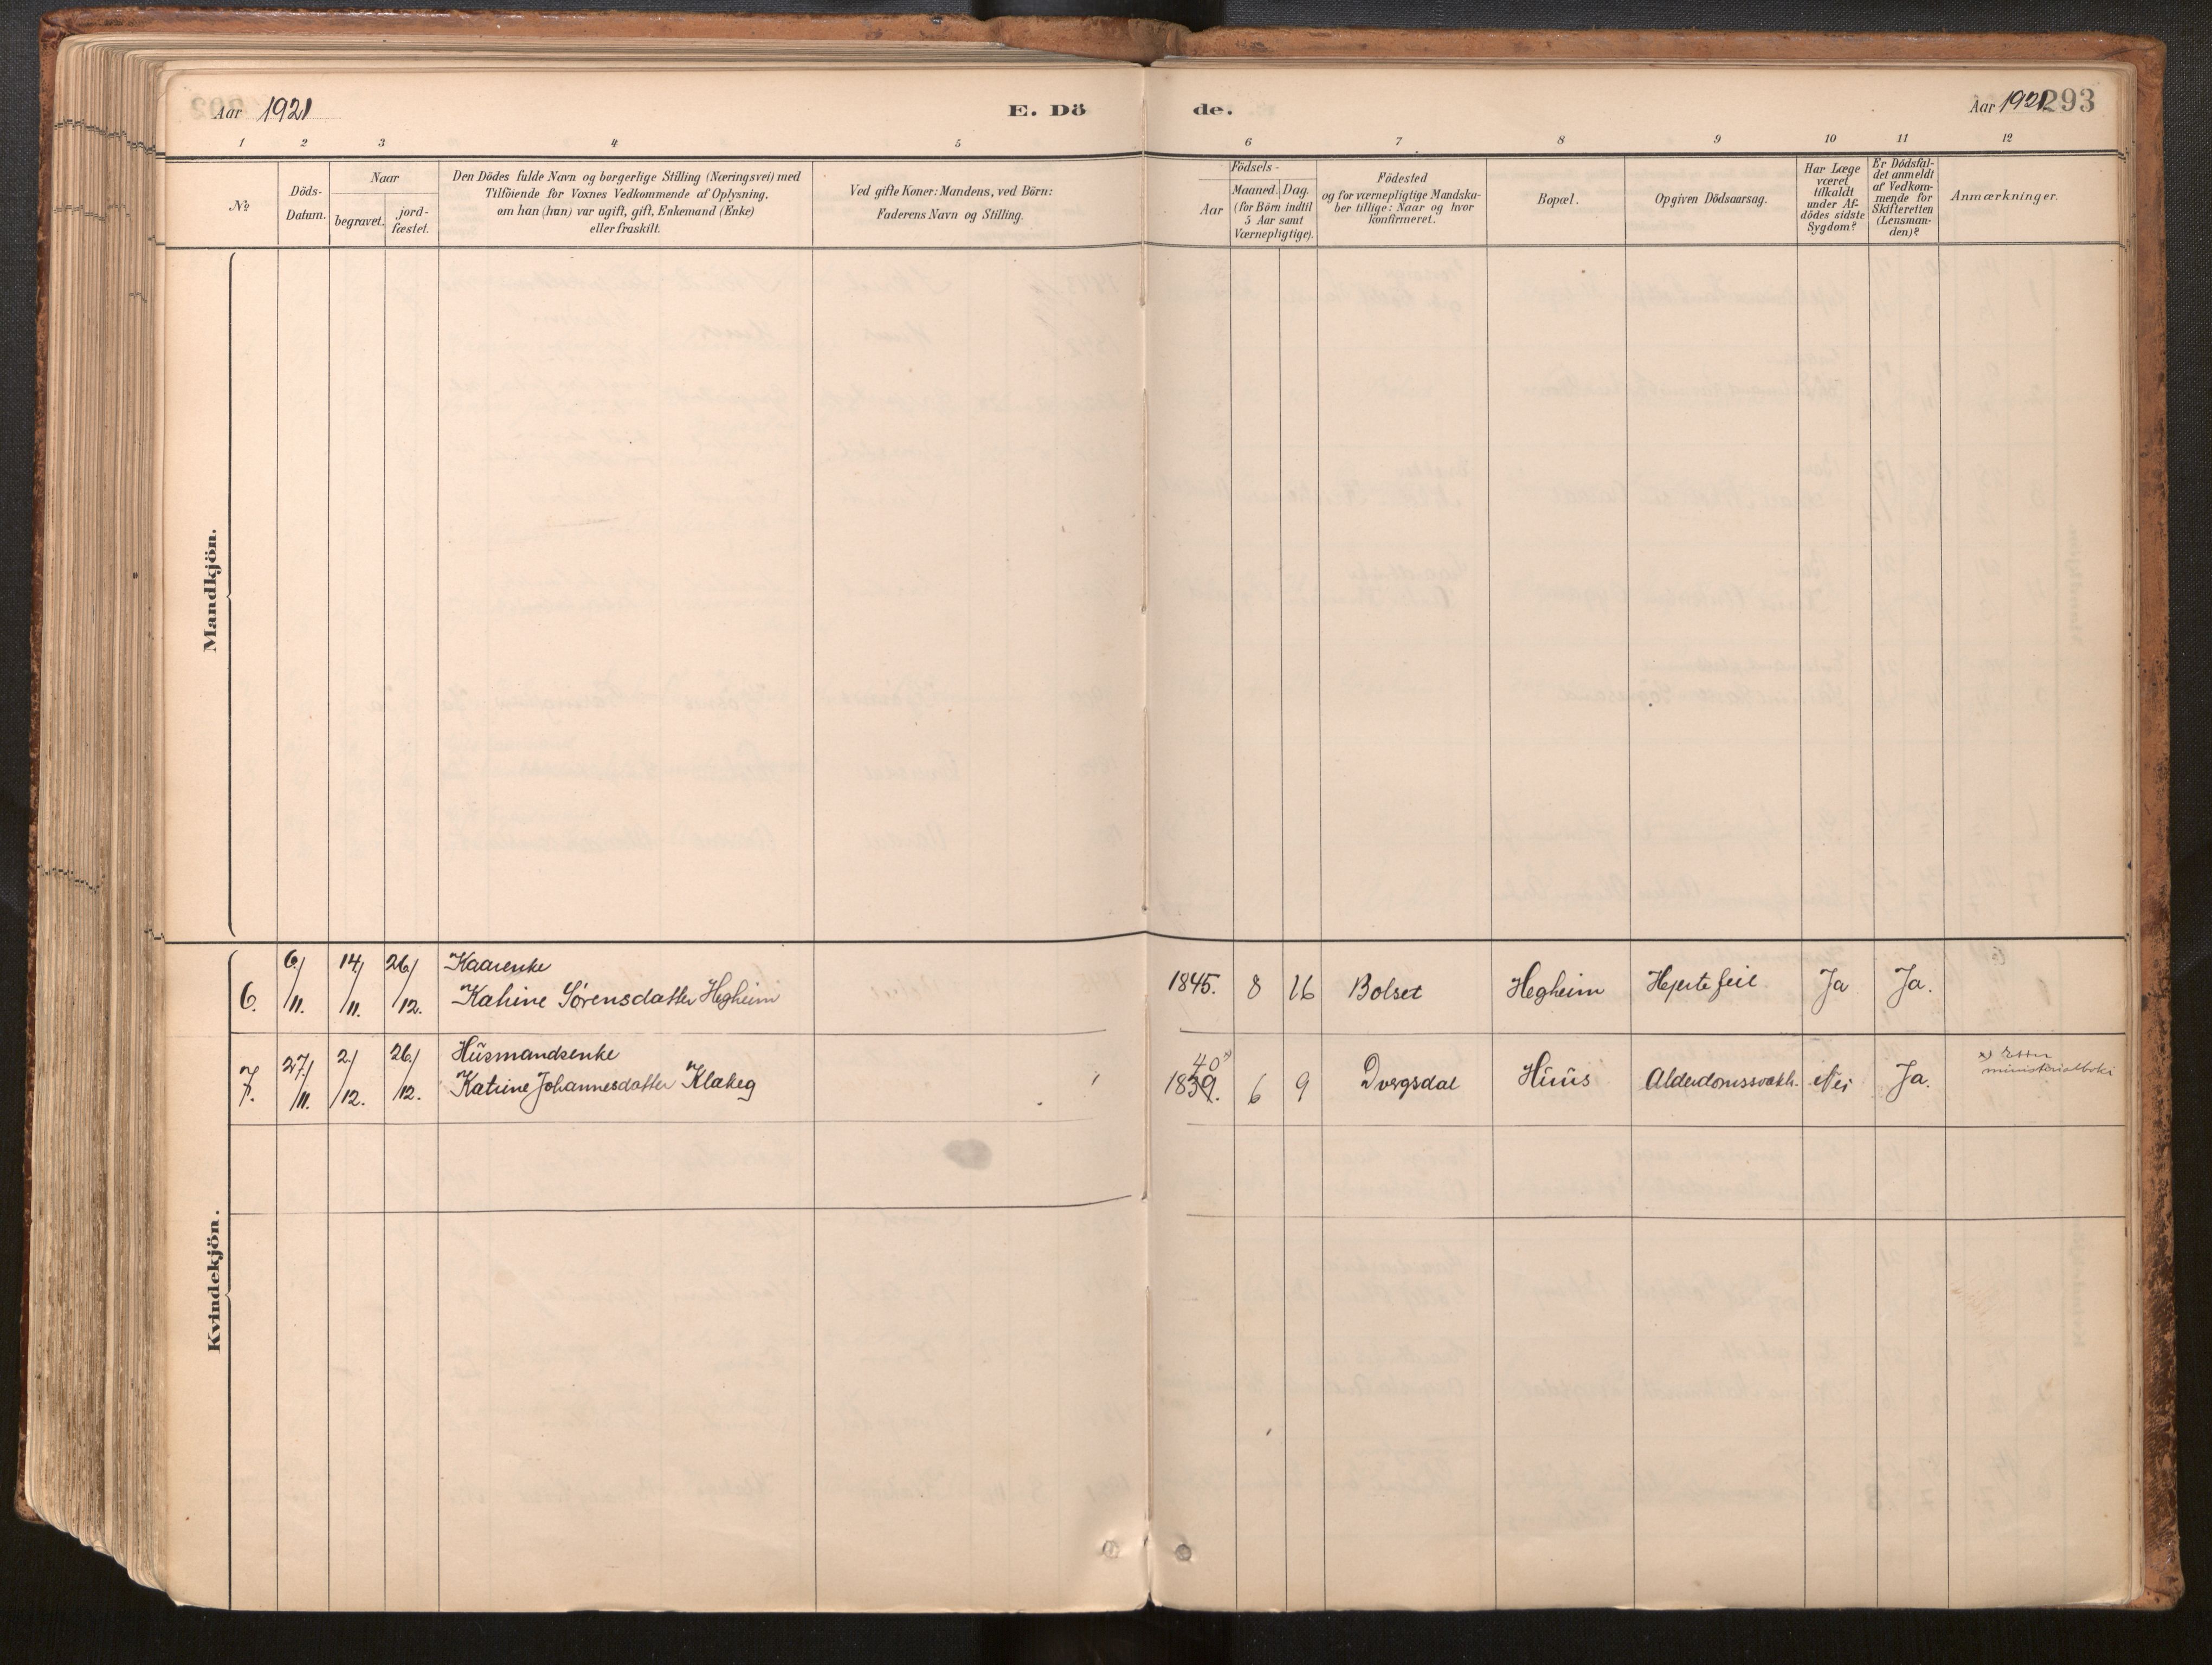 Aar 1921 E. Dö de. Aar 1921. 293
1 2 3 4 5 6 7 8 9 10 11 12
№
Döds-
Datum.
Naar
begravet.
jord-
fæstet.
Den Dödes fulde Navn og borgerlige Stilling (Næringsvei) med
Tilföiende for Voxnes Vedkommende af Oplysning.
om han (hun) var ugift, gift, Enkemand (Enke)
eller fraskilt.
Ved gifte Koner: Mandens, ved Börn:
Faderens Navn og Stilling.
Födsels-
Aar
Maaned. Dag.
(for Börn indtil
5 Aar samt
Værnepligtige).
Födested
og for værnepligtige Mandska-
ber tillige: Naar og hvor
konfirmeret.
Bopæl.
Opgiven Dödsaarsag.
Har Læge
været
tilkaldt
under Af-
dödes sidste
Sygdom?
Er Dödsfal-
det anmeldt
af Vedkom-
mende for
Skifteretten
(Lensman-
den)?
Anmærkninger.
Mandkjön.
Kvindekjön.
6./ 14/ 26/ Kaarenke
6. /11. /11. /12. Katrine Sörensdatter Hegheim 1845. 8 26 Bolset Hegheim Hjertefeil Ja Ja.
27/ 2/ 26/ Husmandsenke 40 x) x) Etter
7. /11. /12. /12. Katrine Johannesdatter Klakeg 1839. 6 9 Dvergsdal Huus Alderdomssvakh. Nei Ja. ministerialboki